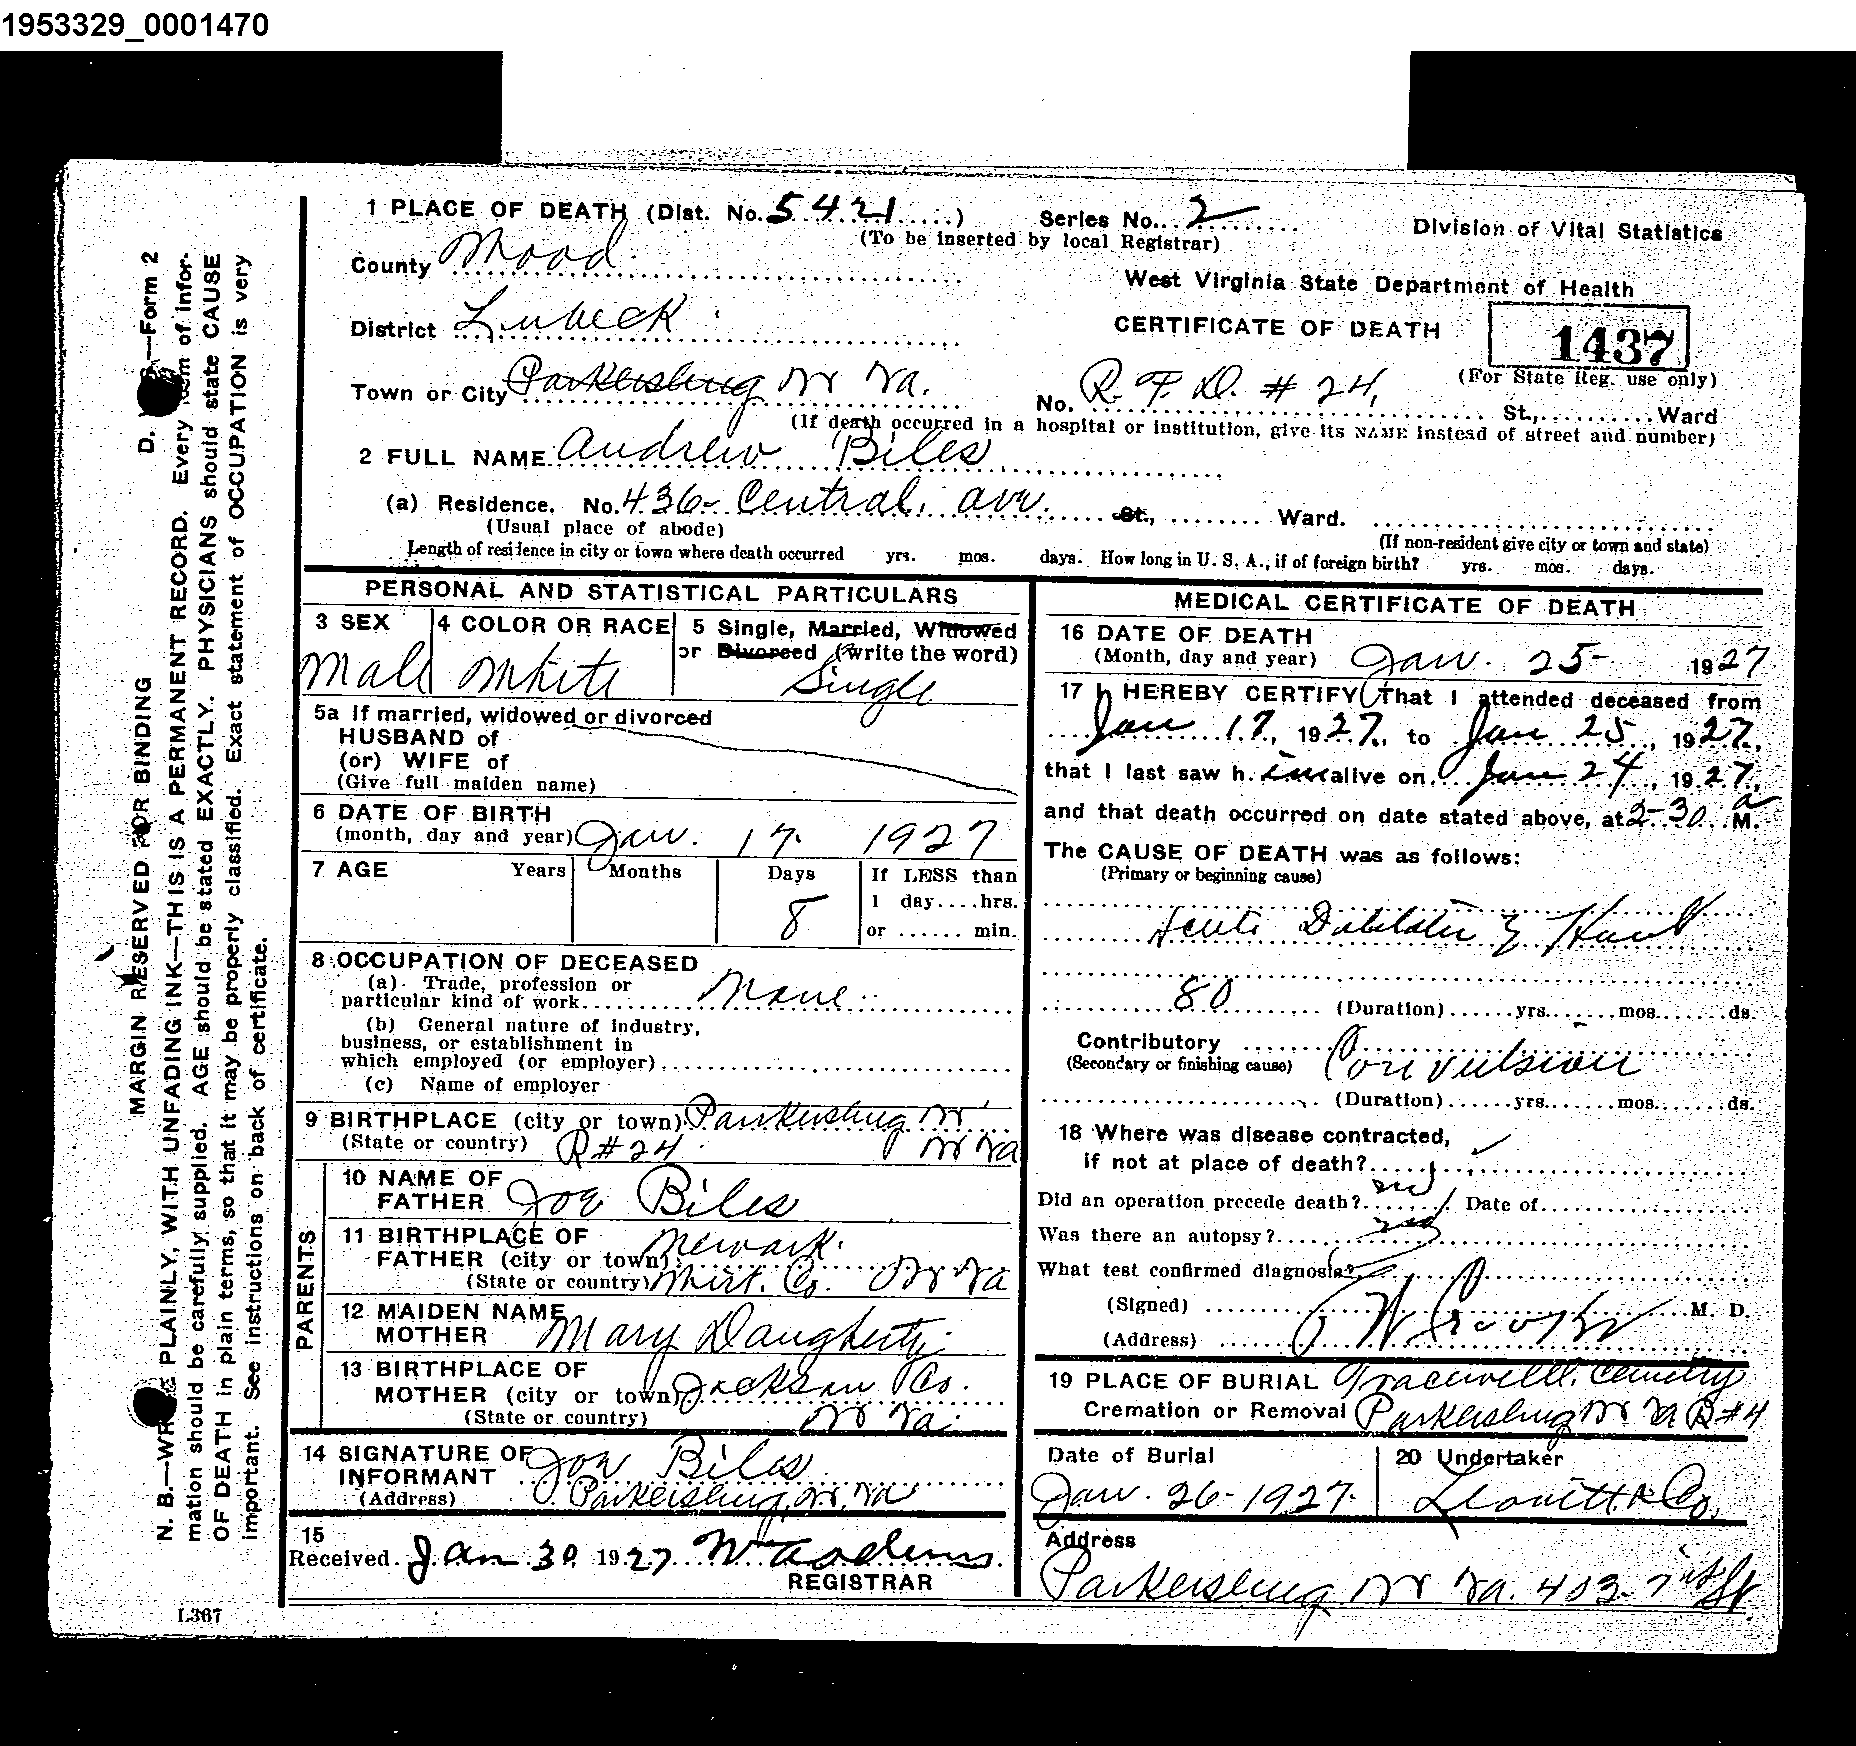 1953329_0001470
1 PLACE OF DEATH (Dist. No. 5421) Series No. 2
(To be inserted by local Registrar)
Division of Vital Statistics
County Wood
West Virginia State Department of Health
District Lubeck
CERTIFICATE OF DEATH
1437
(For State Reg. use only)
Town or City Parkersburg W Va. No. R. F. D. # 24, St., Ward
(If death occurred in a hospital or institution, give its NAME instead of street and number)
2 FULL NAME Andrew Biles
(a) Residence. No. 436- Central. ave. St., Ward.
(Usual place of abode) (If non-resident give city or town and state)
Length of residence in city or town where death occurred yrs. mos. days. How long in U. S. A., if of foreign birth? yrs. mos. days.
PERSONAL AND STATISTICAL PARTICULARS
3 SEX
Male
4 COLOR OR RACE
White
5 Single, Married, Widowed
or Divorced (write the word)
Single
5a If married, widowed or divorced
HUSBAND of
(or) WIFE of
(Give full maiden name)
6 DATE OF BIRTH
(month, day and year) Jan. 17. 1927
7 AGE Years Months Days If LESS than
1 day....hrs.
8
or ...... min.
8 OCCUPATION OF DECEASED
(a) Trade, profession or
particular kind of work None
(b) General nature of industry,
business, or establishment in
which employed (or employer)
(c) Name of employer
9 BIRTHPLACE (city or town) Parkersburg W.
(State or country) R#24 W Va
PARENTS
10 NAME OF
FATHER Joe Biles
11 BIRTHPLACE OF
FATHER (city or town) Newark.
(State or country) Wirt. Co. W Va
12 MAIDEN NAME
MOTHER Mary Daugherty
13 BIRTHPLACE OF
MOTHER (city or town) Jackson Co.
(State or country) W Va.
14 SIGNATURE OF
INFORMANT Joe Biles
(Address) Parkersburg, W. Va
15
Received Jan 30 1927
REGISTRAR
MEDICAL CERTIFICATE OF DEATH
16 DATE OF DEATH
(Month, day and year) Jan. 25- 1927
17 I HEREBY CERTIFY That I attended deceased from
Jan 17, 1927, to Jan 25, 1927,
that I last saw h. im alive on Jan 24, 1927,
and that death occurred on date stated above, at 2-30 a M.
The CAUSE OF DEATH was as follows:
(Primary or beginning cause)
Acute
80 (Duration) yrs. mos. ds.
Contributory
(Secondary or finishing cause) Convulsion
(Duration) yrs. mos. ds.
18 Where was disease contracted,
if not at place of death?
Did an operation precede death? no Date of
Was there an autopsy? no
What test confirmed diagnosis?
(Signed) M. D.
(Address)
19 PLACE OF BURIAL
Cremation or Removal Parkersburg W Va R#4
Date of Burial
Jan. 26-1927.
20 Undertaker
Leavitt & Co.
Address
Parkersburg W Va. 403-7th St
MARGIN RESERVED FOR BINDING D. —Form 2
N. B.—WRITE PLAINLY, WITH UNFADING INK—THIS IS A PERMANENT RECORD. Every item of infor-
mation should be carefully supplied. AGE should be stated EXACTLY. PHYSICIANS should state CAUSE
OF DEATH in plain terms, so that it may be properly classified. Exact statement of OCCUPATION is very
important. See instructions on back of certificate.
L367